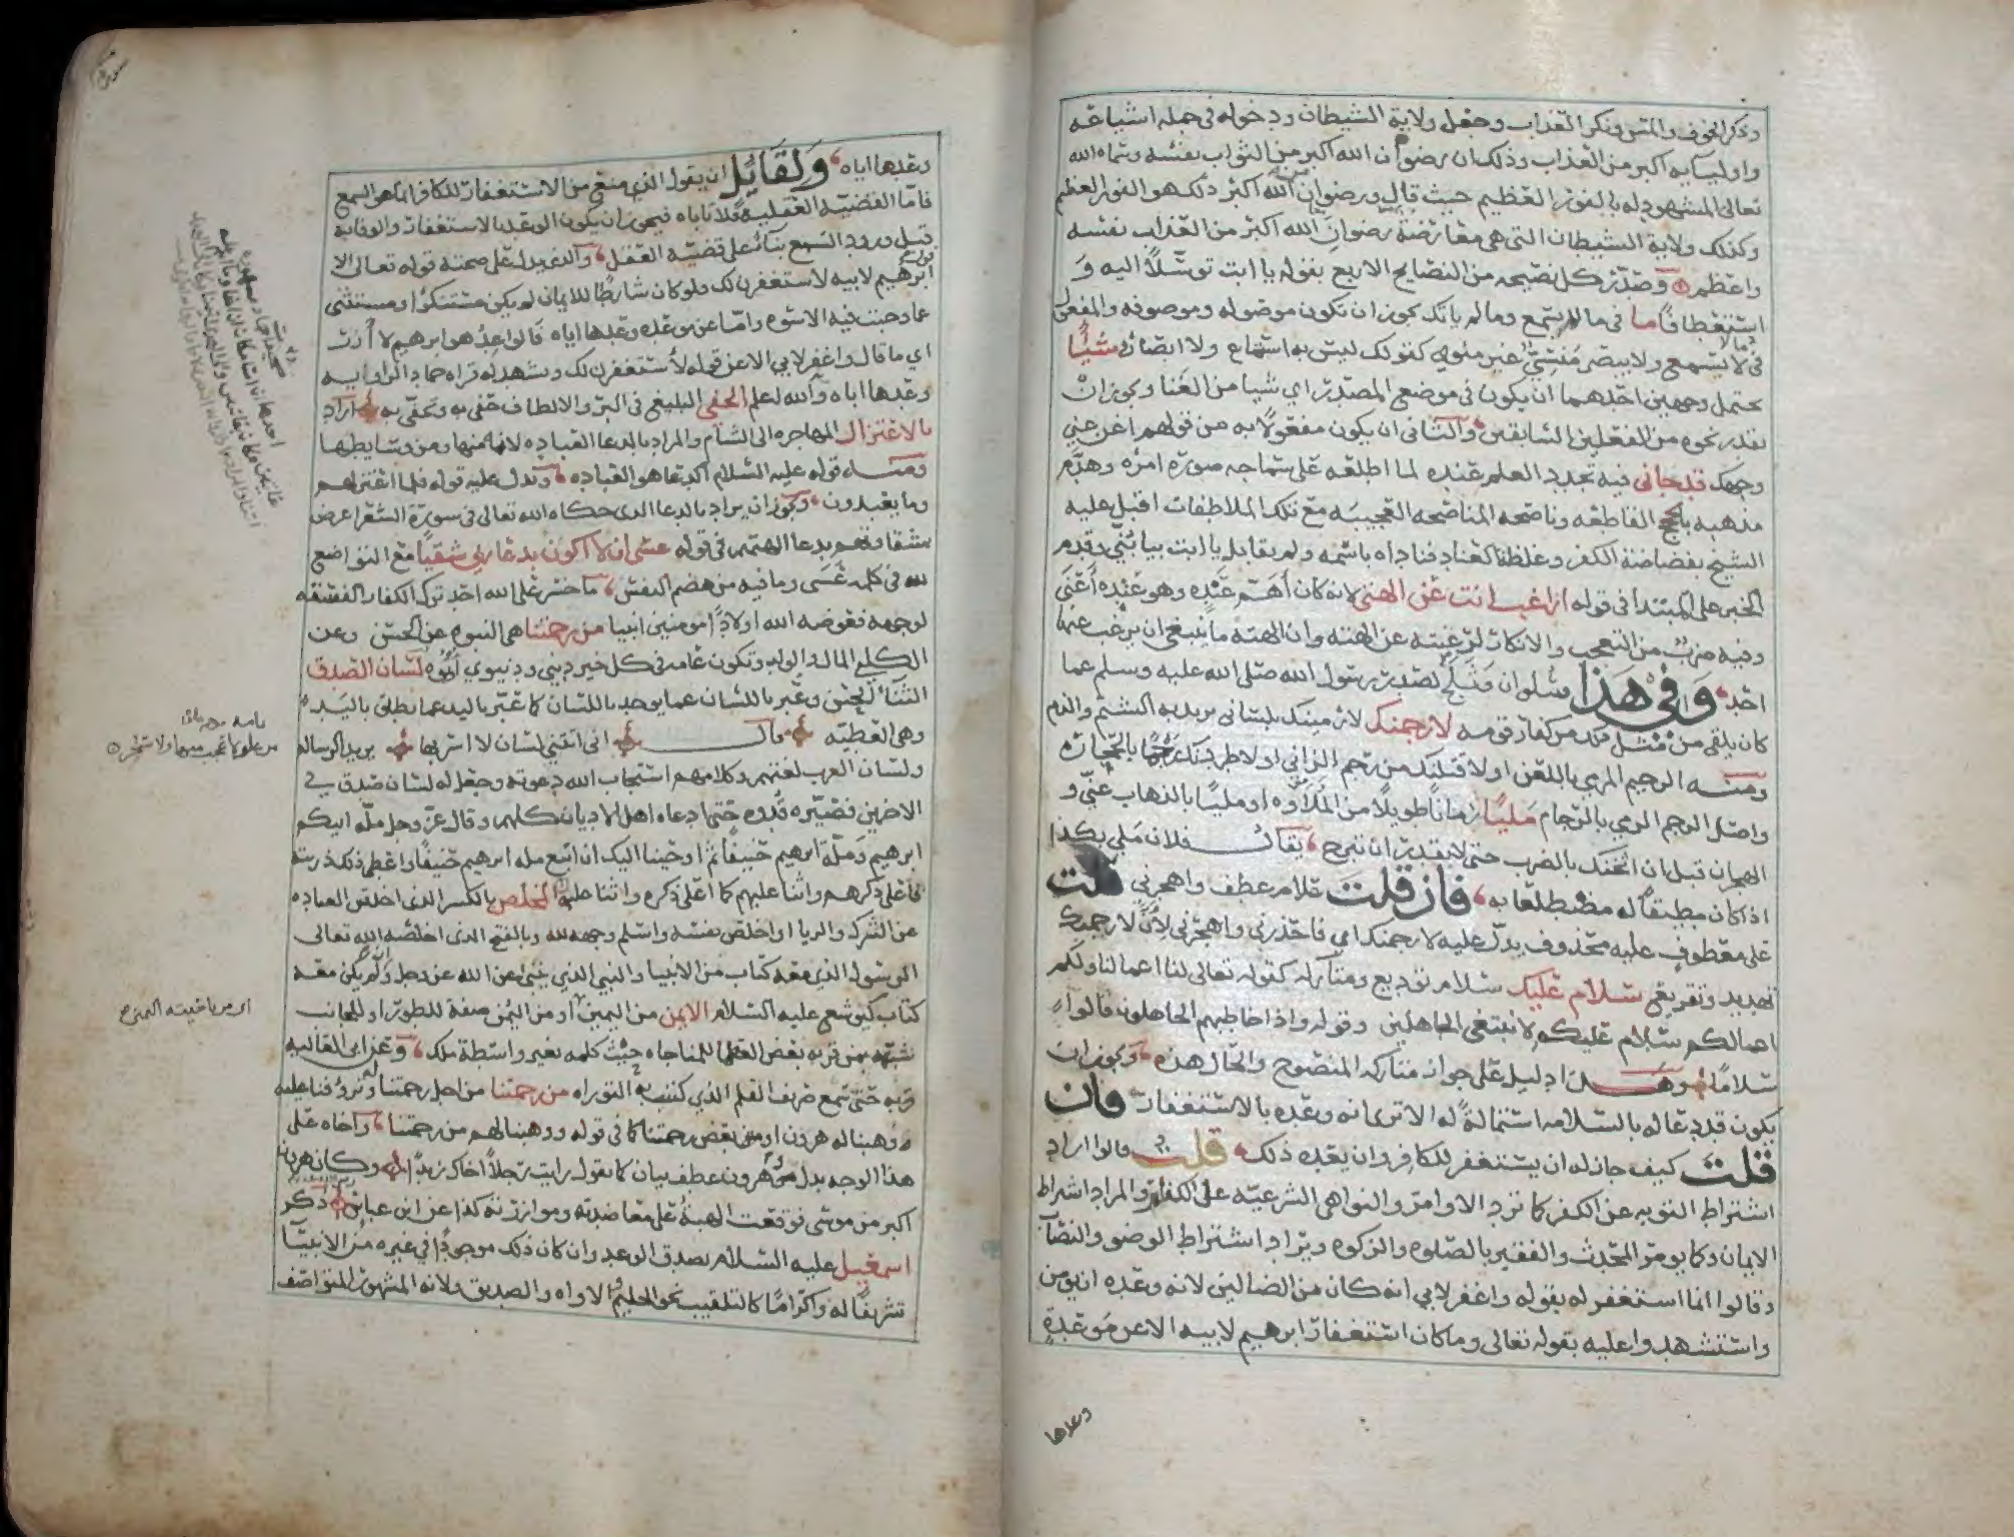 وذكر الخوف والمس ونكر العذاب وجعل ولاية الشيطان ودخوله في جمله اشياعه
واوليايه اكبر من العذاب وذلك ان رضوان الله اكبر من الثواب نفسه وسماه الله
تعالى المشهود له بالفوز العظيم حيث قال ورضوان من الله اكبر ذلك هو الفوز العظيم
وكذلك ولاية الشيطان التي هي معارضة رضوان الله اكبر من العذاب نفسه
واعظم وصدّر كل نصيحه من النصايح الاربع بقوله يا ابت توسّلاً اليه و
استعطافاً ما في ما لا يسمع وما لم ياتك يجوز ان تكون موصوله وموصوفه والمفعول
في لا يسمع ولا يبصر منسيّ غير منوي كقولك ليس به استماع ولا ابصار شيئًا
يحتمل وجهين احدهما ان يكون في موضع المصدر اي شيا من الغنا ويجوز ان
يقدر نحوه من الفعلين السابقين والثاني ان يكون مفعولاً به من قولهم اغن عني
وجهك قد جاني فيه تجدد العلم عنده لما اطلعه على سماجه صورة امره وهدم
مذهبه بالحجج القاطعه وناصحه المناصحه العجيبه مع تلك الملاطفات اقبل عليه
الشيخ بفضاضة الكفر وغلظة العناد فناداه باسمه ولم يقابل يا ابت بيا بُنَيَّ وقدم
الخبر على المبتدا في قوله اراغب انت عن الهتي لانه كان أهمّ عنده وهو عنده أعنى
وفيه ضربٌ من التعجب والانكار لرغبته عن الهته وان الهته ما ينبغي ان يرغب عنها
احد وفي هذا سلوان وثلج لصدر رسول الله صلى الله عليه وسلم عما
كان يلقى من مثل ذلك من كفار قومه لارجمنك لارمينك بلساني يريد به الشتم والذم
ومنه الرجيم المرمي باللعن او لاقتلنك من رجم الزاني او لاطردنك رجماً بالحجاره
واصل الرجم الرمي بالرجام مليًا زماناً طويلاً من المُلاوه او مليًا بالذهاب عنّي و
الهجران قبل ان اثخنك بالضرب حتى لا تقدر ان تبرح يقال فلان ملي بكذا
اذا كان مطيقاً له مضطلعا به فان قلت علام عطف واهجرني قلت
على معطوف عليه محذوف يدل عليه لارجمنك اي فاحذرني واهجرني لأنّ لارجمنك
تهديد وتقريع سلام عليك سلام توديع ومتاركه كقوله تعالى لنا اعمالنا ولكم
اعمالكم سلام عليكم لا نبتغي الجاهلين وقوله واذا خاطبهم الجاهلون قالوا
سلامًا وهذا دليل على جواز متاركه المنصوح والحال هذه ويجوز ان
يكون قد دعا له بالسلامه استمالةً له الا ترى انه وعده بالاستغفار فان
قلت كيف جاز له ان يستغفر للكافر وان يعده ذلك قلت قالوا اراد
اشتراط التوبه عن الكفر كما ترد الاوامر والنواهي الشرعيه على الكفار والمراد اشراط
الايمان وكما يومر المحدث والفقير بالصلوه والزكوه ويراد اشتراط الوضو والنصاب
وقالوا انما استغفر له بقوله واغفر لابي انه كان من الضالين لانه وعده ان يومن
واستشهدوا عليه بقوله تعالى وما كان استغفار ابرهيم لابيه الا عن موعدة
وعدها
وعدها اياه ولقائل ان يقول الذي منع من الاستغفار للكافر انما هو السمع
فاما القضيه العقليه فلا تاباه فيجوز ان يكون الوعد بالاستغفار والوفا به
قبل ورود السمع بناءً على قضيه العقل والذي يدل على صحته قوله تعالى الا
قول ابرهيم لابيه لاستغفرن لك ولو كان شارطًا للايمان لم يكن مستنكرًا ومستثنى
عما وجبت فيه الاسوه واما عن موعده وعدها اياه فالواعد هو ابرهيم لا آزر
اي ما قال واغفر لابي الا عن قوله لأستغفرن لك وتشهد له قراه حماد الراويه
وعدها اباه والله اعلم الحفي البليغ في البرّ والالطاف حفي به وتحفّى به اراد
بالاعتزال المهاجره الى الشام والمراد بالدعا العباده لانه منها ومن وسايطها
ومنه قوله عليه السلام الدعا هو العباده وتدل عليه قوله فلما اعتزلهم
وما يعبدون ويجوز ان يراد بالدعا الذي حكاه الله تعالى في سورة الشعرا عرض
بشقاوتهم بدعا الهتهم في قوله عسى ان لا اكون بدعا ربي شقيًا مع التواضع
لله في كلمه عَسَى وما فيه من هضم النفس ما خسر على الله احد ترك الكفار الفسقه
لوجهه فعوضه الله اولاداً مومنين انبيا من رحمتنا هي النبوه عن الحسن وعن
الكلبي المال والولد وتكون عامه في كل خير ديني ودنيوي أوتوه لسان الصدق
الثناء الحسن وعبّر باللسان عما يوجد باللسان كما عبّر باليد عما يطلق باليد
وهي العطيّه قال اني اتتني لسان لا اسرّ بها يريد الرساله
ولسان العرب لغتهم وكلامهم استجاب الله دعوته وجعل له لسان صدق في
الاخرين فصيّره قدوه حتى ادعاه اهل الاديان كلهم وقال عزّ وجل ملّه ابيكم
ابرهيم وملّة ابرهيم حنيفاً ثم اوحينا اليك ان اتبع مله ابرهيم حنيفًا واعطى ذلك ذريته
فاعلى ذكرهم واثنا عليهم كما اعلى ذكره واثنا عليه المخلص بالكسر الذي اخلص العباده
عن الشرك والريا او اخلص نفسه واسلم وجهه لله وبالفتح الذي اخلصه الله تعالى
الرسول الذي معه كتاب من الانبيا والنبي الذي ينبئ عن الله عز وجل وان لم يكن معه
كتاب كيوشع عليه السلام الايمن من اليمين او من اليُمن صفة للطور او للجانب
شبّهه بمن قربه بعض العظما للمناجاه حيث كلمه بغير واسطة ملك وعن ابي العاليه
قربه حتى سمع صريف القلم الذي كتبت به التوراه من رحمتنا من اجل رحمتنا له وترؤفنا عليه
وهبنا له هرون او بعض رحمتنا كما في قوله ووهبنا لهم من رحمتنا واخاه على
هذا الوجه بدل وهرون عطف بيان كما تقول رايت رجلاً اخاك زيدًا وكان هرون
اكبر من موسى فوقعت الهبة على معاضدته وموازرته كذا عن ابن عباس ذكر
اسمعيل عليه السلام بصدق الوعد وان كان ذلك موجودًا في غيره من الانبيا
تشريفًا له واكرامًا كالتلقيب نحو الحليم الاواه والصديق ولانه المشهور المتواصف